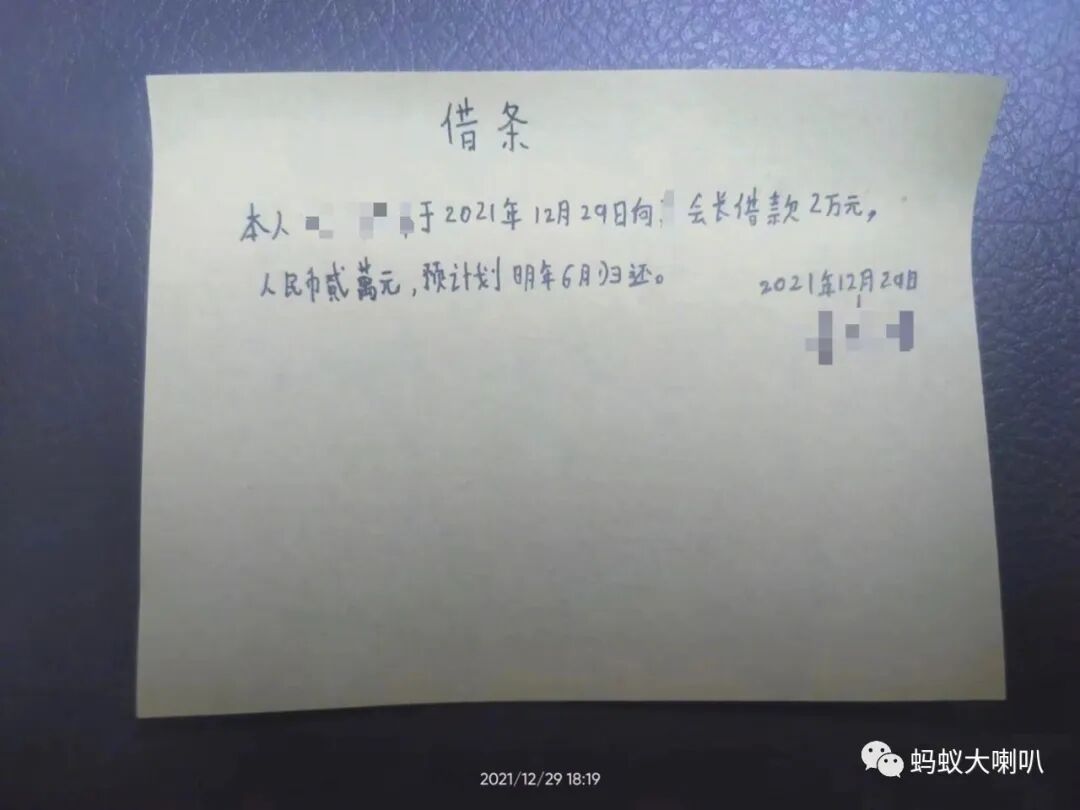 借条
本人 于2021年12月29日向 会长借款2万元,
人民币贰萬元,预计划明年6月归还。
2021年12月29日
2021/12/29 18:19
蚂蚁大喇叭